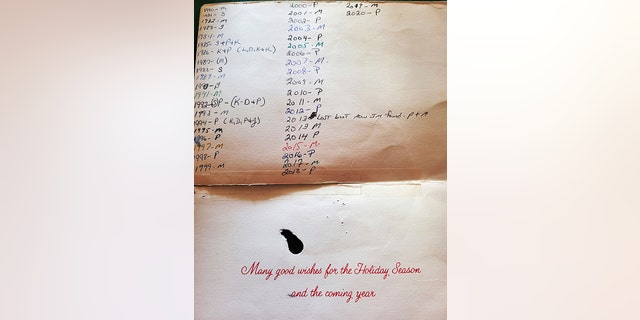 1981 - S
1982 - M
1983 - S
1985 - S+P+K
1986 - K+P (L,D,K+K)
1987 - (M)
1988 - S
1989 - M
1991 - M
P - (K-D+P)
1993 - M
1994 - P (K,D,P+J)
1995 - M
1996 - P
1997 - M
1998 - P
1999 - M
2000 - P
2001 - M
2002 - P
2003 - M
2004 - P
2005 - M
2006 - P
2007 - M
2008 - P
2009 - M
2010 - P
2011 - M
2012 - P
2012 Lost but now I'm found - P+M
2013 M
2014 P
2015 - M
2016 - P
2017 - M
2018 - P
2019 - M
2020 - P
Many good wishes for the Holiday Season
and the coming year